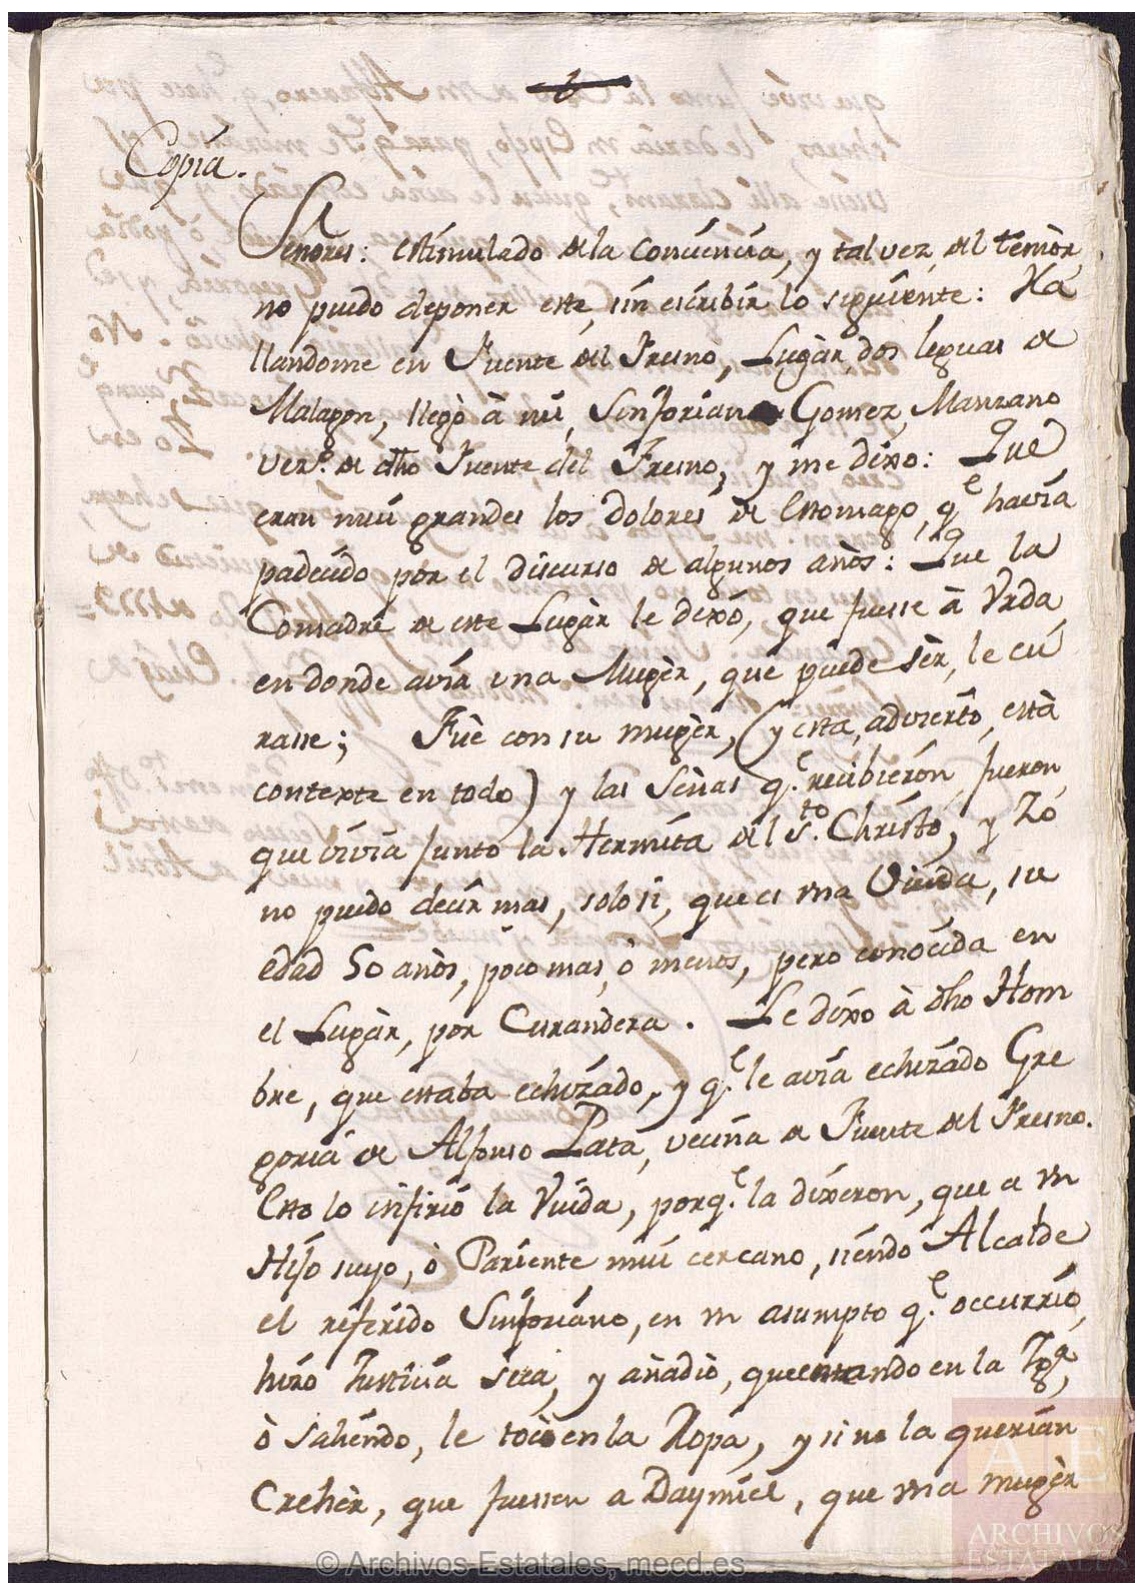 Copia.
Señores: estimulado de la Conciencia, y tal vez, del temòr,
no puedo deponer este, sin escribir lo siguiente: Ha
llandome en Fuente del Fresno, Lugàr dos leguas de
Malagon, llegò à mi, Sinforiano Gomez Manzano
vez.º de dho Fuente del Fresno, y me dixo: Que
eran mui grandes los dolores de Estomago, q.e havia
padecido por el discurso de algunos años: Que la
Comadre de este Lugàr le dixo, que fuesse à Vrda,
en donde avia una Mugèr, que puede sèr, le cu
rasse; Fuè con su mugèr, (y esta, advierto, està
contexte en todo) y las Señas q.e recibieron, fueron,
que vivia junto la Hermita del S.to Christo, y Yo
no puedo decir mas, solo si, que es vna Viuda, su
edad 50 años, poco mas, ò menos, pero conocida en
el Lugàr, por Curandera. Le dixo à dho Hom
bre, que estaba echizado, y q.e le avia echizado Gre
goria de Alfonso Pata, vecina de Fuente del Fresno.
Esto lo infiriò la Viuda, porq.e la dixeron, que a vn
Hijo suyo, ò Pariente mui cercano, siendo Alcalde
el referido Sinforiano, en vn asumpto q.e occurriò,
hizo Justicia seca, y añadiò, que entrando en la Yg.a,
ò saliendo, le tocò en la Ropa, y si no la querian
Crehèr, que fuessen a Daymiel, que vna mugèr
© Archivos Estatales, mecd.es
AE
ARCHIVOS
ESTATALES